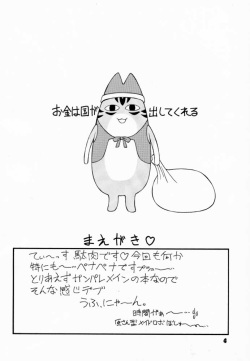 お金は国が出してくれる
まえがき♡
てぃ〜っす 駄肉です♡今回も何か
特にも〜ペナペナですプゥ〜
とりあえずガンパレメインの本なので
そんな感じデブ
うふ、にゃーん。
時間がぁ〜
4